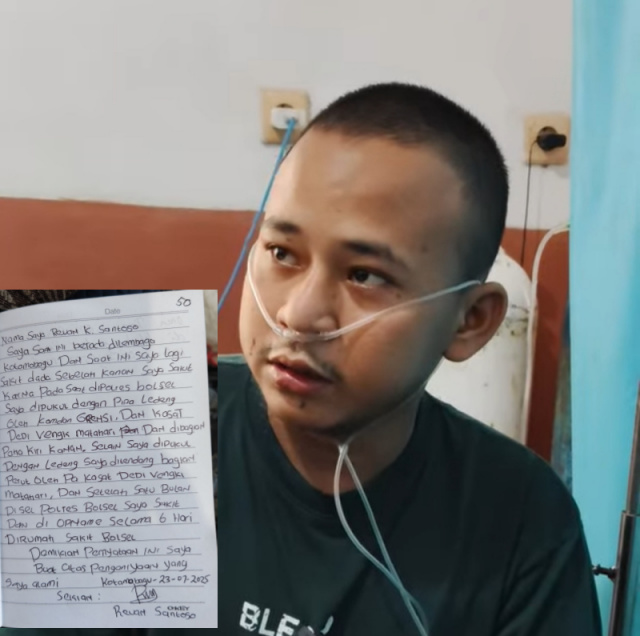 50
Date
Nama Saya Rewan K. Santoso
Saya Saat ini berada dilembaga
Kotamobagu Dan Saat INI Saya lagi
Sakit dada Sebelah Kanan Saya Sakit
Karna Pada Saat dipolres bolsel
Saya dipukul dengan Pipa Ledeng
Oleh Kanabo GRENSI, Dan Kasat
Debi Vengki matahari Dan dibagian
Paha Kiri KaNaN, Selain Saya dipukul
Dengan Ledeng Saya ditendang bagian
Perut Oleh Pa Kasat Debi Vengki
matahari, Dan Setelah Satu Bulan
Disel Polres Bolsel Saya Sakit
Dan di OPName Selama 6 Hari
Dirumah Sakit Bolsel
Demikian Pernyataan INI Saya
Buat Atas Penganiyaan yang
Saya alami Kotamobagu-23-07-2025
Sekian:
Rewan Santoso
BLE